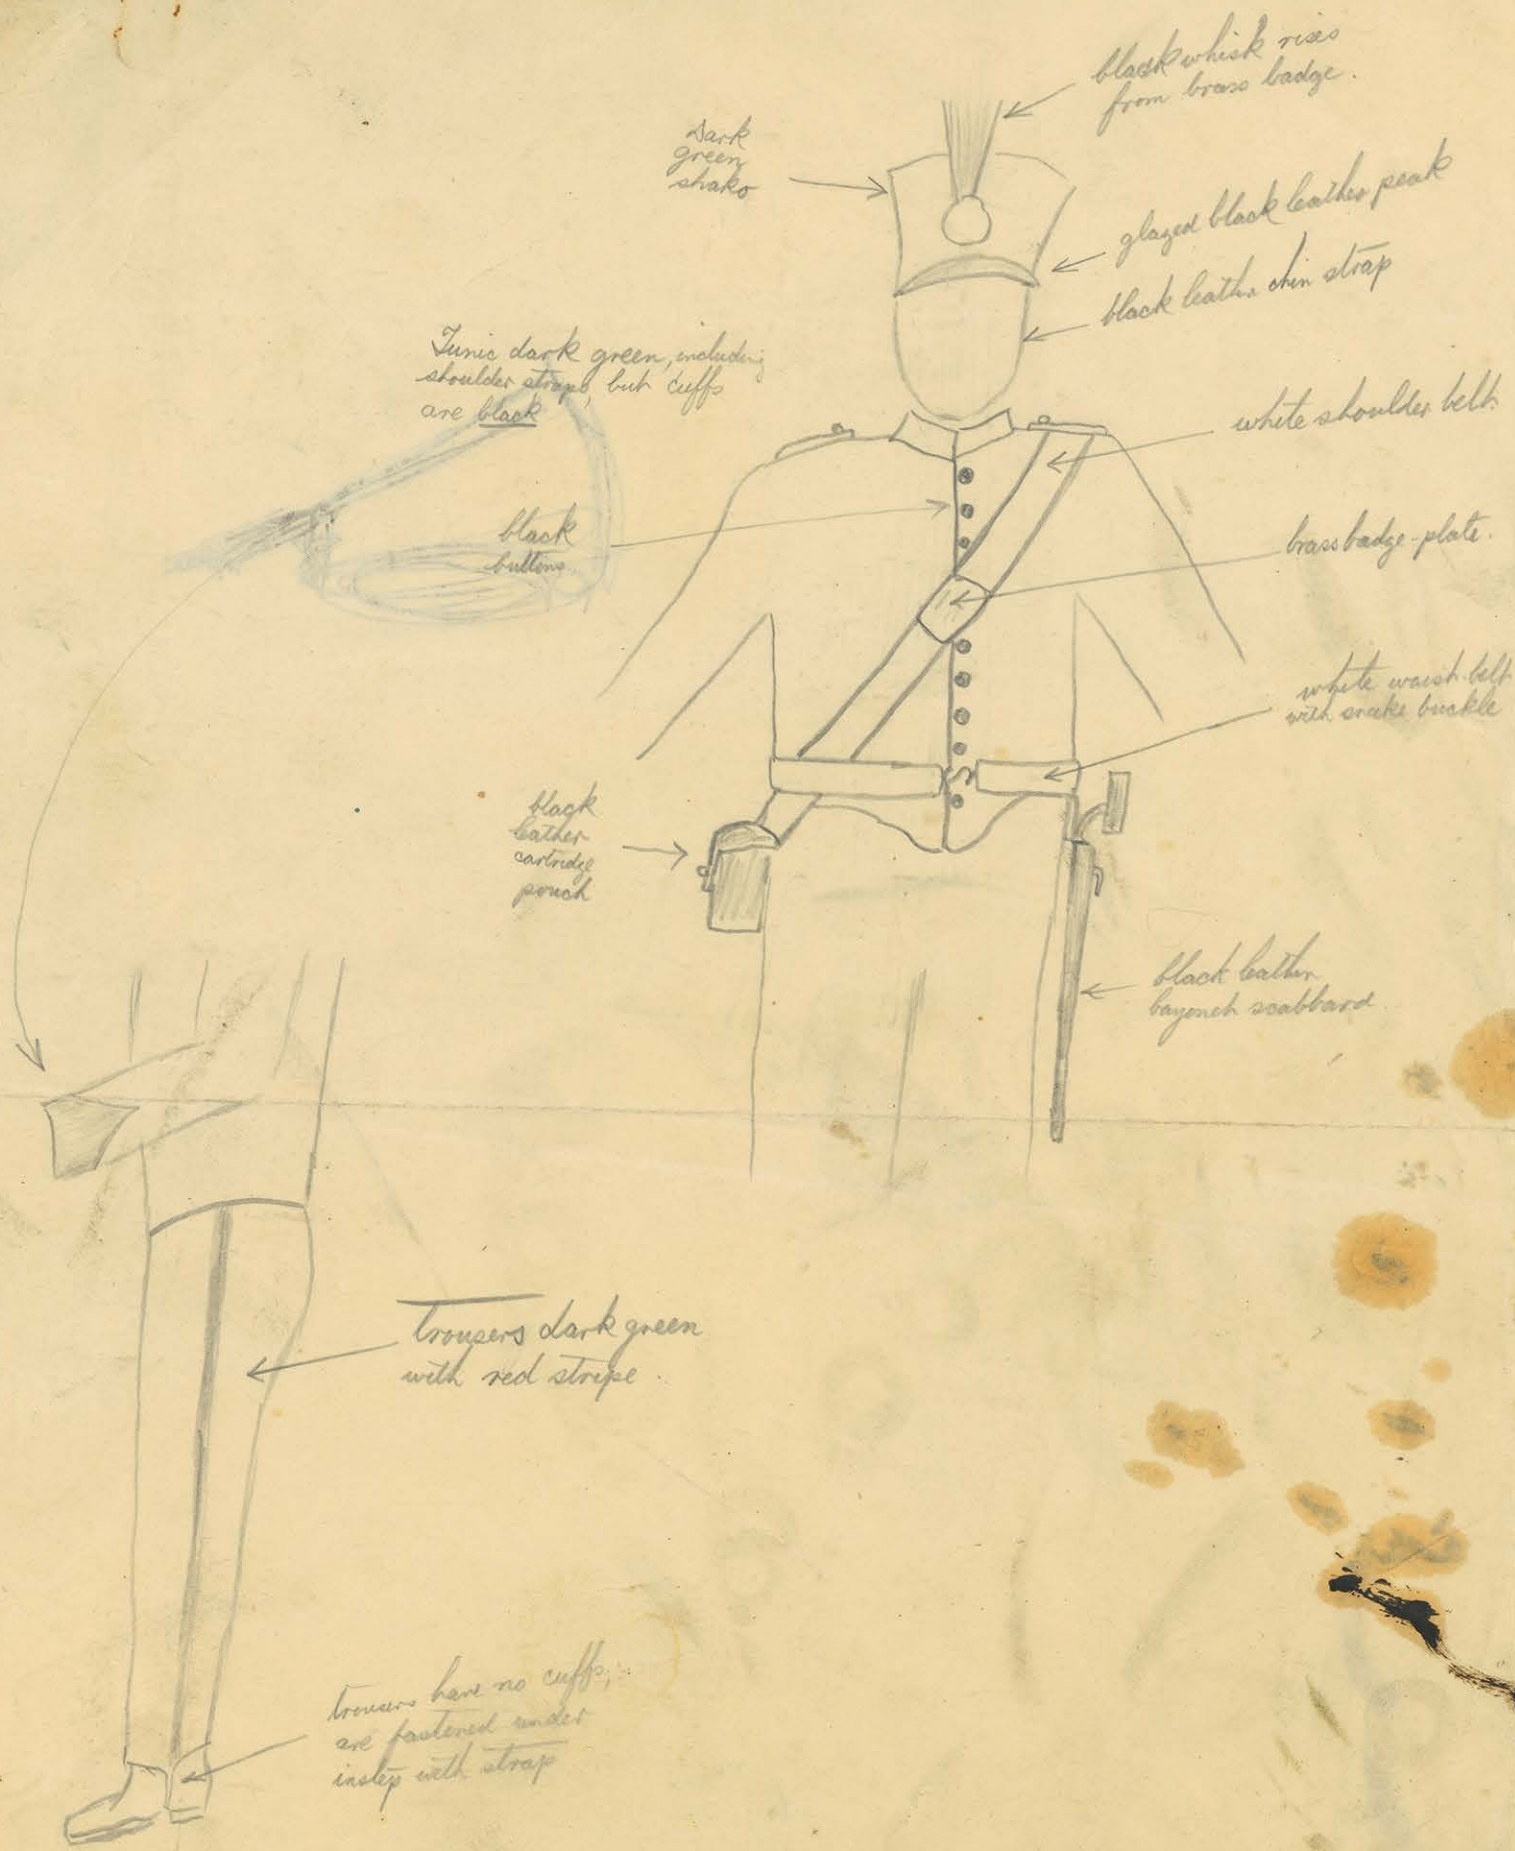 black whisk rises
from brass badge.
Dark
green
shako
glazed black leather peak
black leather chin strap
Tunic dark green, including
shoulder straps, but cuffs
are black
white shoulder belt.
black
buttons
brass badge-plate.
white waist-belt
with snake buckle
black
leather
cartridge
pouch
black leather
bayonet scabbard
trousers dark green
with red stripe.
trousers have no cuffs,
are fastened under
instep with strap